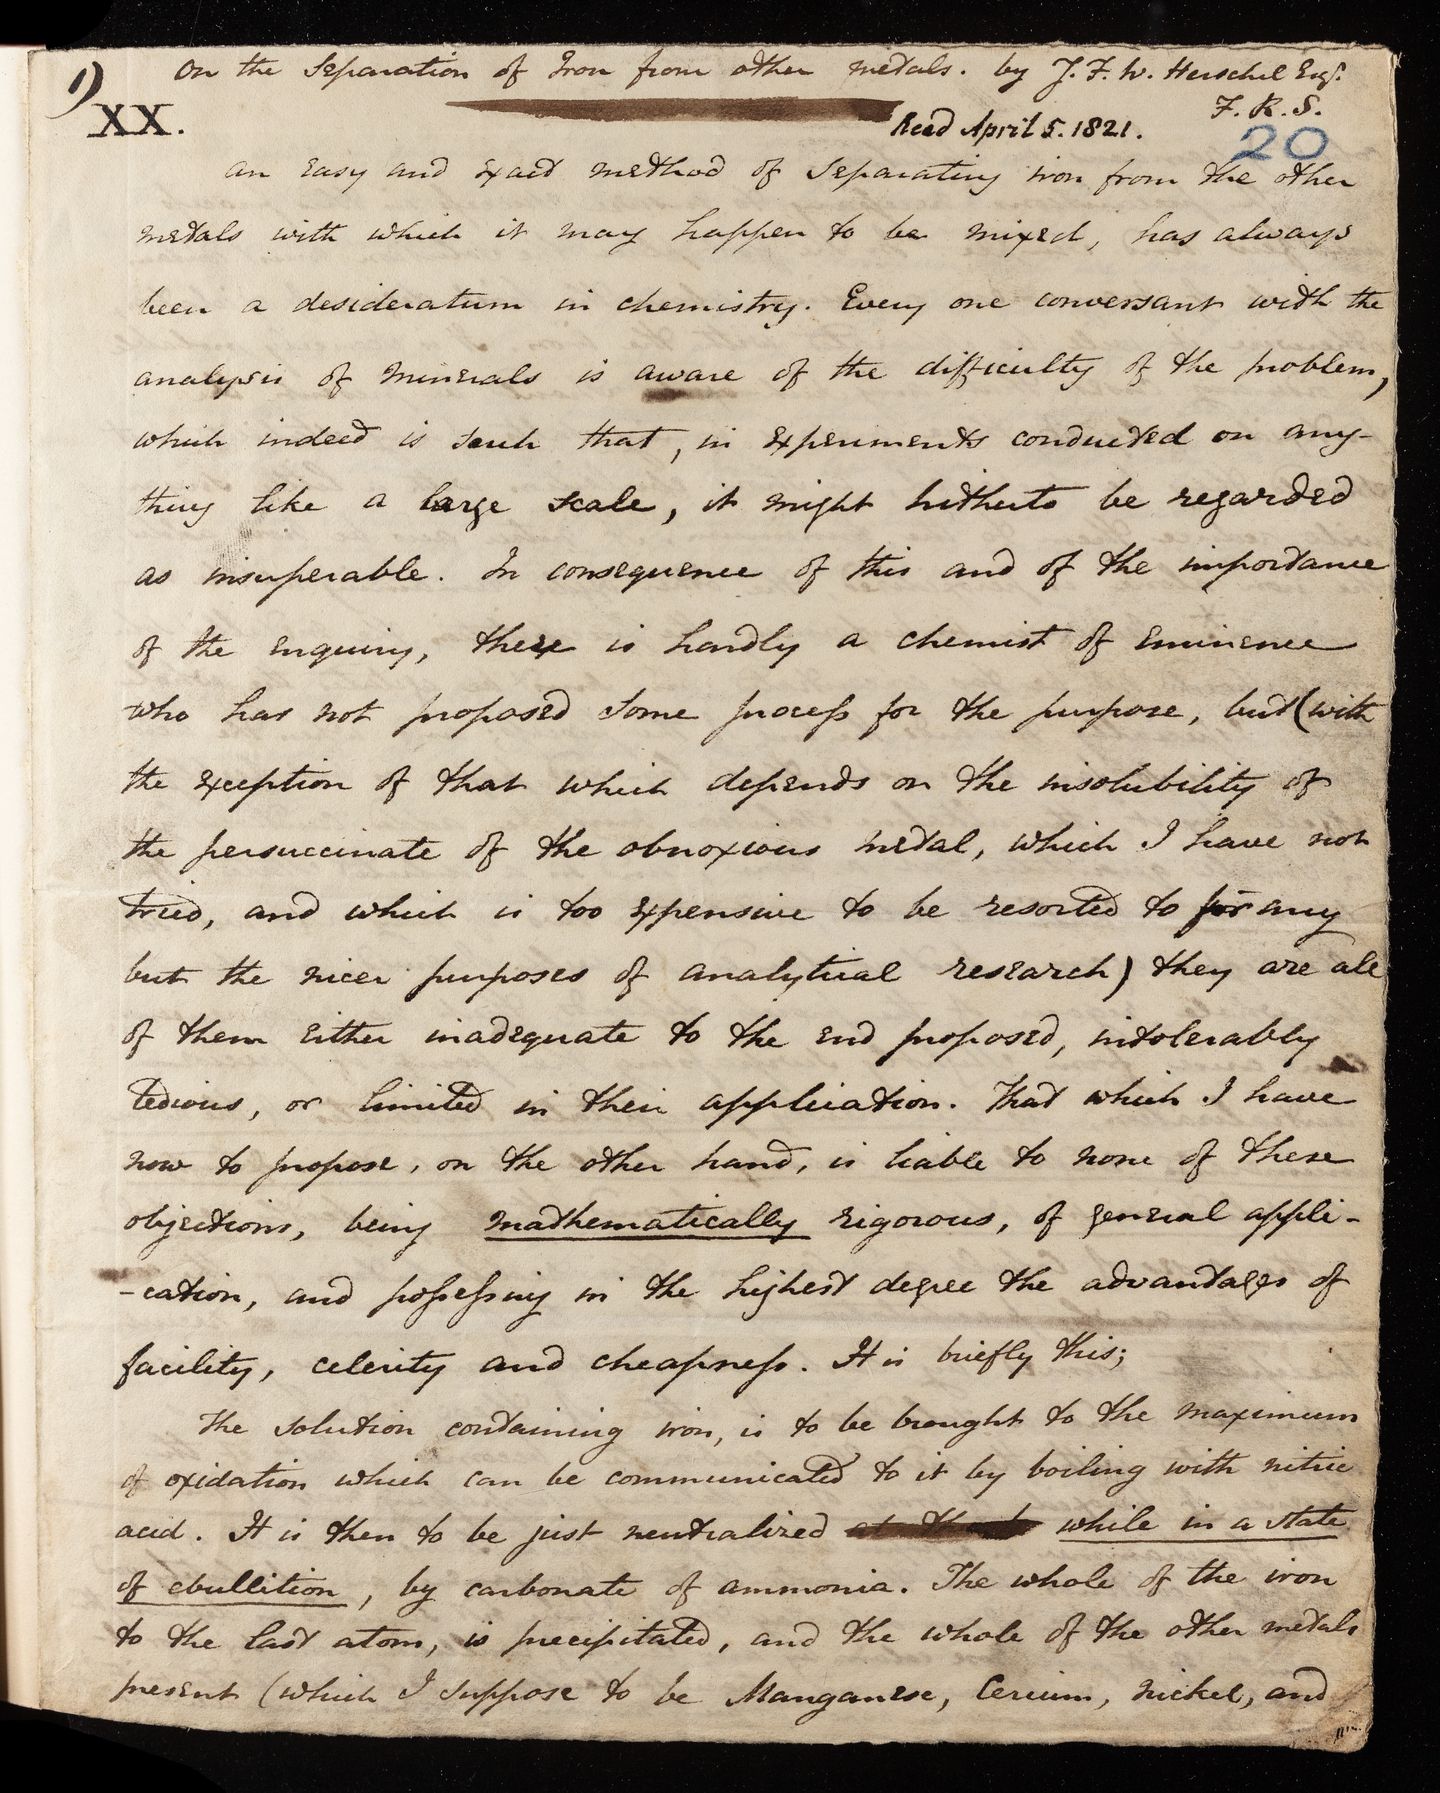 1)
On the Separation of Iron from other metals. by J. F. W. Herschel Esqr.
F. R. S.
XX.
Read April 5. 1821.
20
An easy and exact method of separating iron from the other
metals with which it may happen to be mixed, has always
been a desideratum in chemistry. Every one conversant with the
analysis of minerals is aware of the difficulty of the problem,
which indeed is such that, in experiments conducted on any-
thing like a large scale, it might hitherto be regarded
as insuperable. In consequence of this and of the importance
of the enquiry, there is hardly a chemist of eminence
who has not proposed some process for the purpose, but (with
the exception of that which depends on the insolubility of
the persuccinate of the obnoxious metal, which I have not
tried, and which is too expensive to be resorted to for any
but the nicer purposes of analytical research) they are all
of them either inadequate to the end proposed, intolerably
tedious, or limited in their application. That which I have
now to propose, on the other hand, is liable to none of these
objections, being mathematically rigorous, of general appli-
-cation, and possessing in the highest degree the advantages of
facility, celerity and cheapness. It is briefly this;
The solution containing iron, is to be brought to the maximum
of oxidation which can be communicated to it by boiling with nitric
acid. It is then to be just neutralized while in a state
of ebullition, by carbonate of ammonia. The whole of the iron
to the last atom, is precipitated, and the whole of the other metals
present (which I suppose to be Manganese, Cerium, Nickel, and